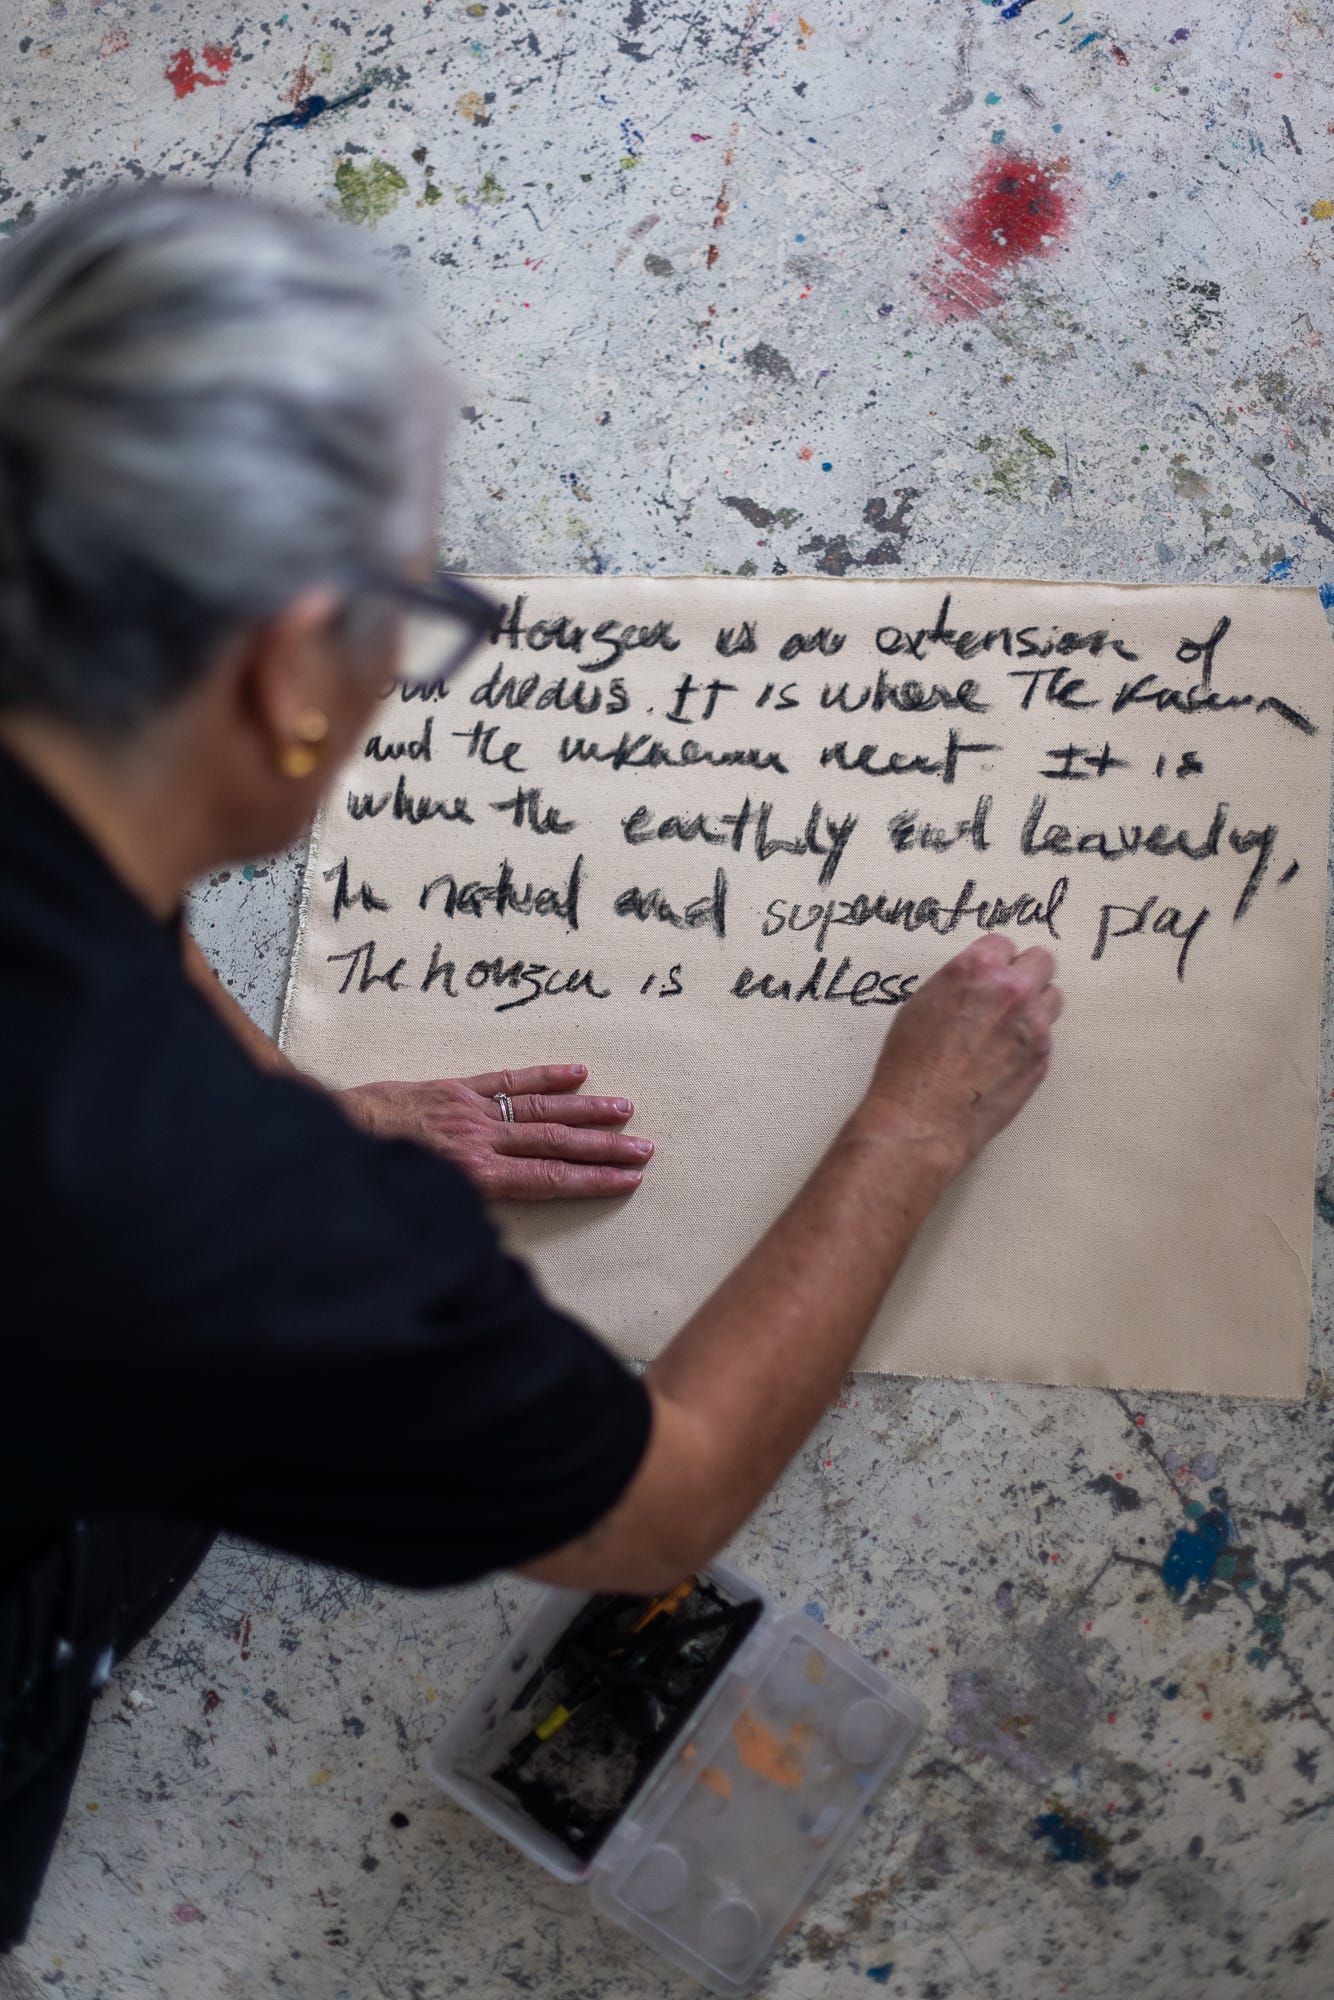 Horizon is an extension of
our dreams. It is where The Known
and the unknown meet. It is
where the earthly and heavenly,
The natural and supernatural play
The horizon is endless